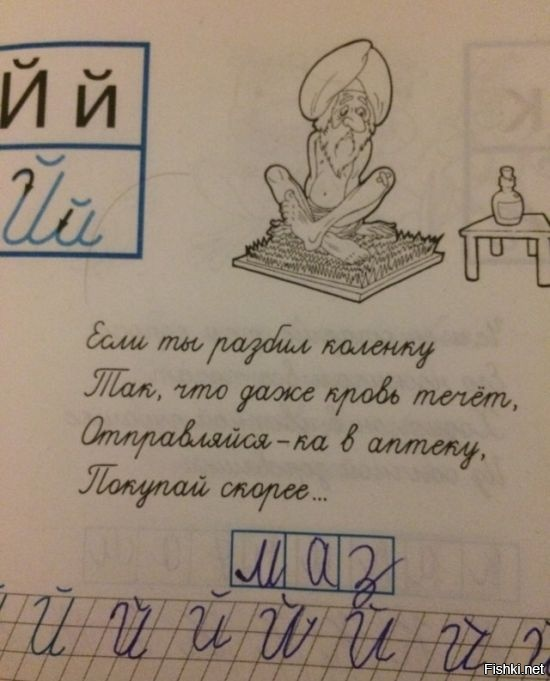 Й й
Йй
К
Если ты разбил коленку
Так, что даже кровь течёт,
Отправляйся-ка в аптеку,
Покупай скорее...
маз
Й Й Й Й Й Й Й
Fishki.net